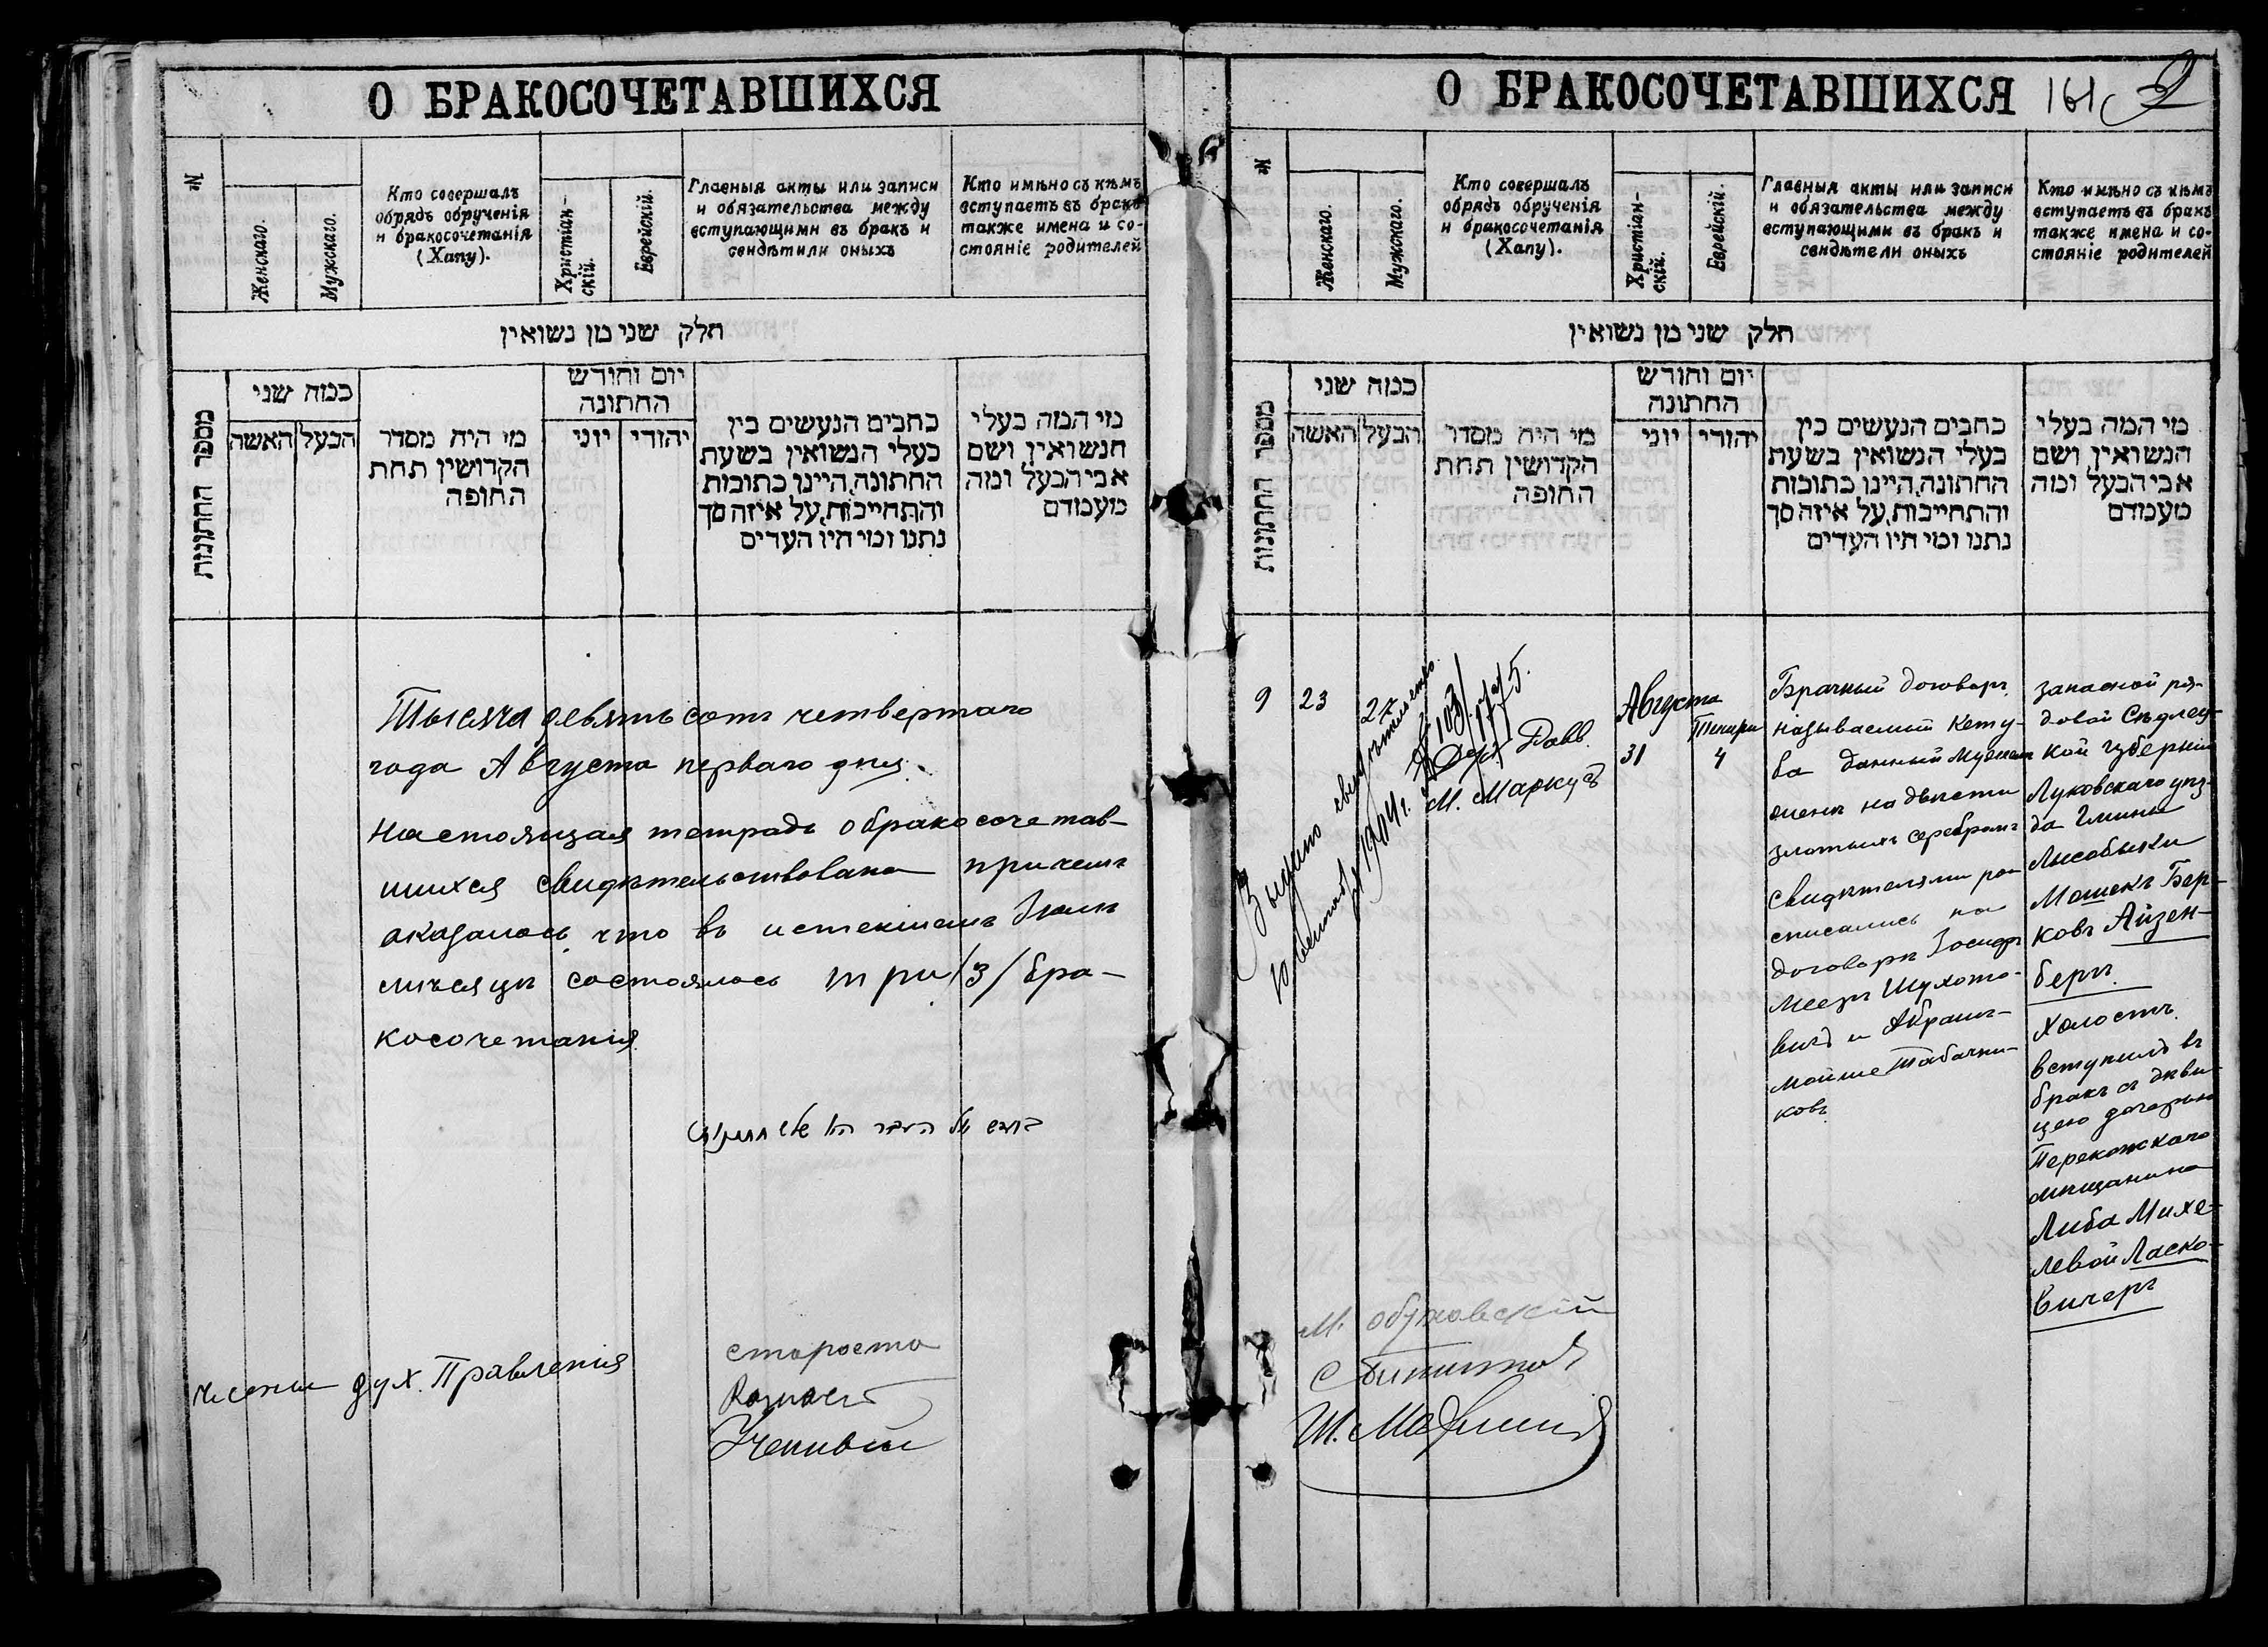 О БРАКОСОЧЕТАВШИХСЯ
№
Женскаго.
Мужскаго.
Кто совершалъ
обрядъ обрученія
и бракосочетанія
(Хапу).
Христіан-
скій.
Еврейскій.
Главныя акты или записи
и обязательства между
вступающими въ бракъ и
свидѣтили оныхъ
Кто имѣно съ кѣмъ
вступаетъ въ бракъ
также имена и со-
стояніе родителей
חלק שני מן נשואין
מספר החתונות
כמה שני
האשה
הבעל
מי היה מסדר
הקדושין תחת
החופה
יום וחורש
החתונה
יוני
יהודי
כתבים הנעשים בין
בעלי הנשואין בשעת
החתונה, היינו כתובות
והתחייבות, על איזה סך
נתנו ומי היו העדים
מי המה בעלי
הנשואין ושם
אבי הבעל ומה
מעמדם
Тысяча девятьсотъ четвертаго
года Августа перваго дня.
Настоящая тетрадь о бракосочетав-
шихся свидѣтельствована причемъ
оказалось что въ истекшемъ Іюлѣ
мѣсяцѣ состоялось три /3/ бра-
косочетанія
дух. Правленія
староста
Казначей
Ученый
О БРАКОСОЧЕТАВШИХСЯ
161
2
№
Женскаго.
Мужскаго.
Кто совершалъ
обрядъ обрученія
и бракосочетанія
(Хапу).
Христіан-
скій.
Еврейскій.
Главныя акты или записи
и обязательства между
вступающими въ бракъ и
свидѣтели оныхъ
Кто имѣно съ кѣмъ
вступаетъ въ бракъ
также имена и со-
стояніе родителей
חלק שני מן נשואין
מספר החתונות
כמה שני
האשה
הבעל
מי היה מסדר
הקדושין תחת
החופה
יום וחורש
החתונה
יוני
יהודי
כתבים הנעשים בין
בעלי הנשואין בשעת
החתונה, היינו כתובות
והתחייבות, על איזה סך
נתנו ומי היו העדים
מי המה בעלי
הנשואין ושם
אבי הבעל ומה
מעמדם
9
23
Выдано свидѣтельство
1904 г. № 103
Равв.
М. Маркусъ
Августа
31
Тишри
4
Брачный договоръ
называемый Кету-
ва данный мужемъ
женѣ на двѣсти
злотыхъ серебромъ
свидѣтелями рос
списались на
договорѣ Іосифъ
Мееръ Шухото-
вичъ и Абрамъ-
Мойше Табачни-
ковъ
запасной ря-
довой Сѣдлец-
кой губерніи
Луковскаго уѣз-
да Гмины
Лысобыки
Мошекъ Бер-
ковъ Айзен-
бергъ.
Холостъ.
вступилъ въ
бракъ съ дѣви-
цею дочерью
Перекопскаго
мѣщанина
Либа Михе-
левой Ласко-
вичеръ
М. Обуховскій